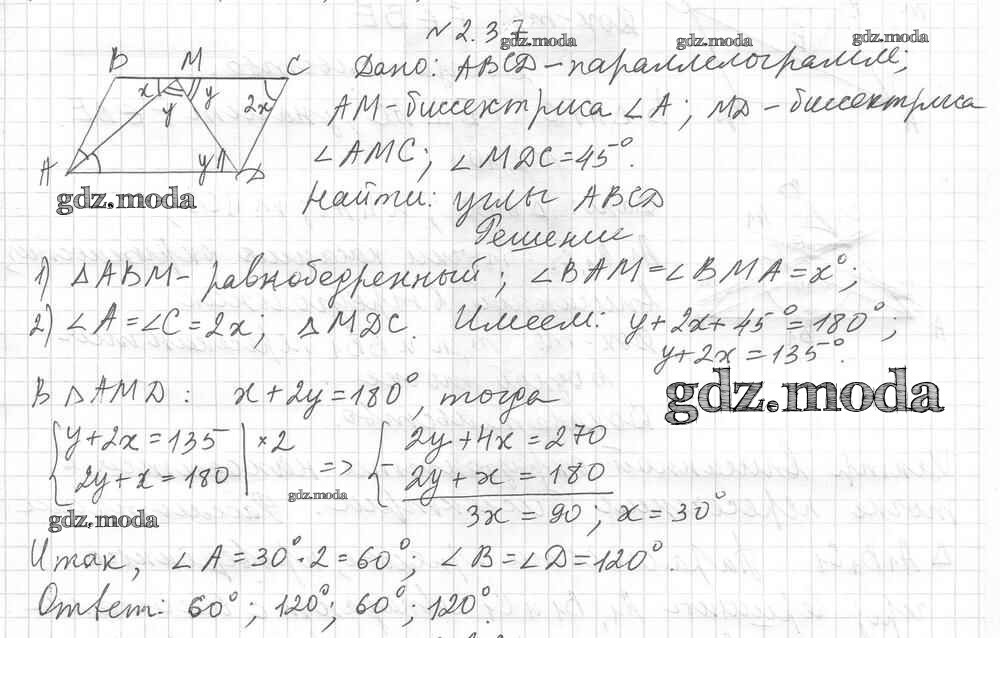 № 2.3.7
gdz.moda gdz.moda gdz.moda
B M C
x y 2x
y
A y D
Дано: ABCD – параллелограмм;
AM – биссектриса ∠A; MD – биссектриса
∠AMC; ∠MDC = 45°.
gdz.moda
Найти: углы ABCD
Решение
1) △ABM – равнобедренный; ∠BAM = ∠BMA = x°;
2) ∠A = ∠C = 2x; △MDC. Имеем: y + 2x + 45° = 180°;
y + 2x = 135°.
gdz.moda
В △AMD: x + 2y = 180°, тогда
{ y + 2x = 135 | × 2 => { 2y + 4x = 270
2y + x = 180 | – 2y + x = 180
gdz.moda
gdz.moda
3x = 90; x = 30°
Итак, ∠A = 30° · 2 = 60°; ∠B = ∠D = 120°.
Ответ: 60°; 120°; 60°; 120°.